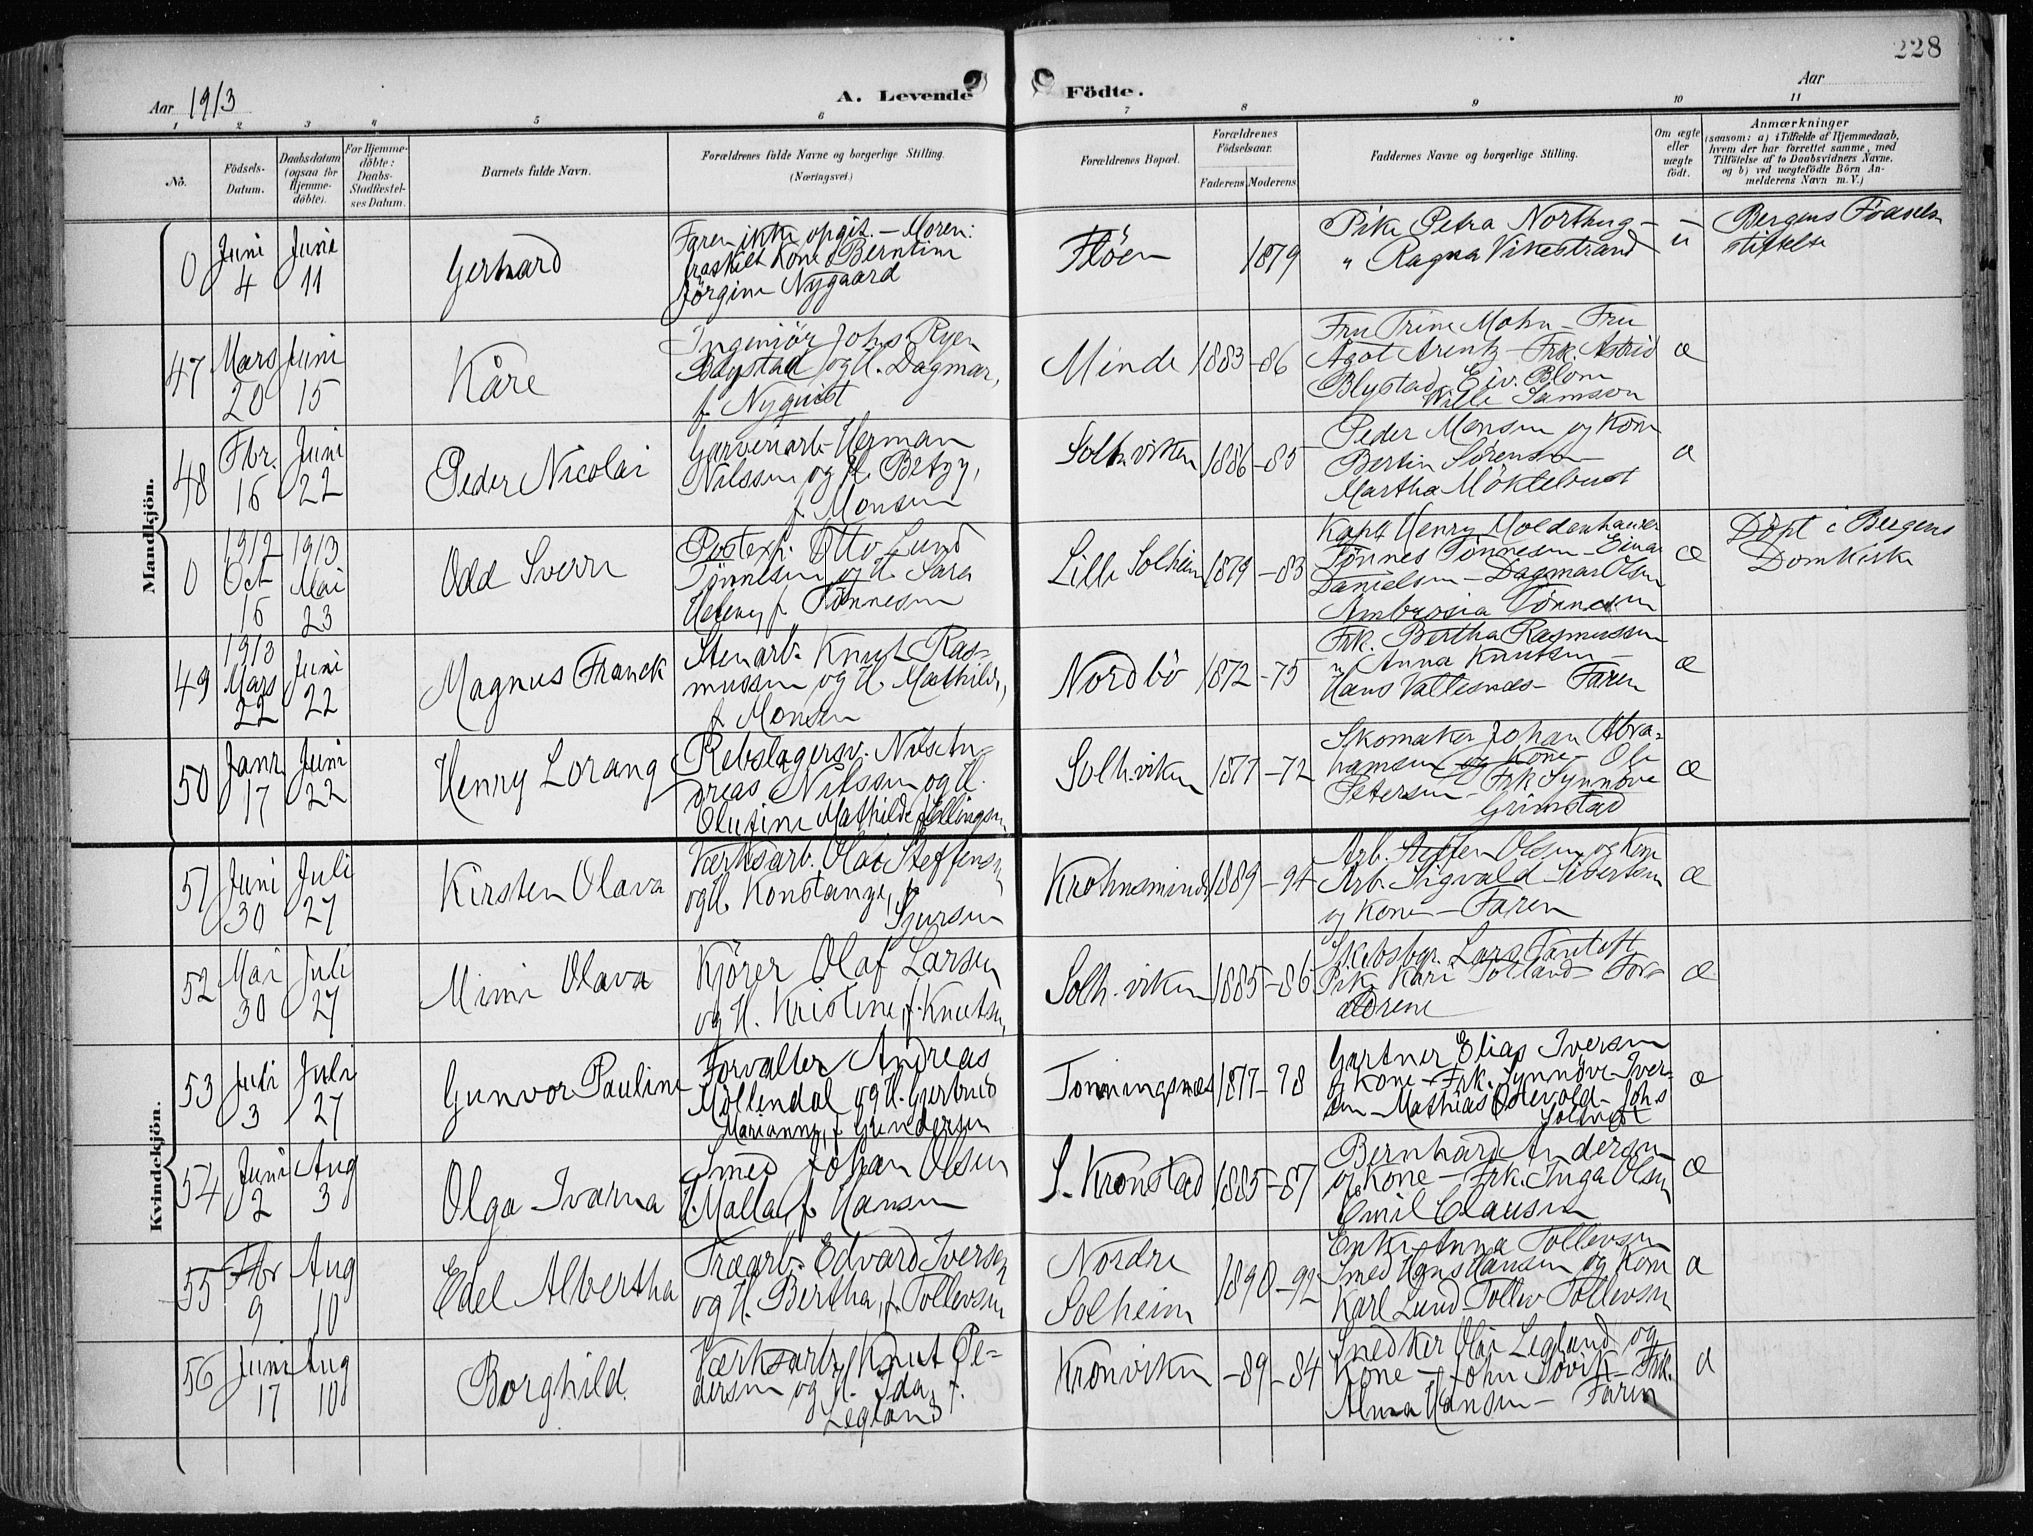 228
Aar 1913
A. Levende Födte.
Aar
1 2 3 4 5 6 7 8 9 10 11
No.
Födsels-
Datum.
Daabsdatum
(ogsaa for
Hjemme-
döbte).
For Hjemme-
döbte:
Daabs-
Stadfæstel-
ses Datum.
Barnets fulde Navn.
Forældrenes fulde Navne og borgerlige Stilling.
(Næringsvei.)
Forældrenes Bopæl.
Forældrenes
Födselsaar.
Faderens Moderens
Faddernes Navne og borgerlige Stilling.
Om ægte
eller
uægte
födt.
Anmærkninger
(saasom: a) i Tilfælde af Hjemmedaab,
hvem der har forrettet samme, med
Tilföielse af to Daabsvidners Navne.
og b) ved uægtefödte Börn An-
melderens Navn m.V.)
Mandkjön.
0
Juni
4
Juni
11
Gerhard
Faren ikke opgit. – Moren:
fraskilt Kone Berntine
Jörgine Nygaard
Flöen
1879
Pike Petra Northug –
" Ragna Vikestrand
u
Bergens Födsels
stiftelse
47
Mars
20
Juni
15
Kåre
Ingeniör Johs Ryen
Blystad og H. Dagmar,
f. Nyquist
Minde
1883 -86
Fru Trine Mohn – Fru
Agot Arentz – Frk. Astrid
Blystad Eiv. Blom
Wille Samson
æ
48
Fbr.
16
Juni
22
Peder Nicolai
Garveriarb. Herman
Nilssen og H. Betzy,
f. Monsen
Solh.viken
1886 -85
Peder Monsen og Kone
Bertin Sörensen
Martha
æ
0
1912
Oct
16
1913
Mai
23
Odd Sverre
Postexp. Otto Lund
Tönnesen og H. Sara
Heleny f. Tönnesen
Lille Solheim
1879 -83
Kapt Henry Moldenhauer
Tönnes Tönnesen – Einar
Danielsen – Dagmar Olsen
Ambrosia Tönnesen
æ
Döpt i Bergens
Domkirke
49
1913
Mars
22
Juni
22
Magnus Franck
Stenarb. Knut Ras-
mussen og H. Mathilde,
f. Monsen
Nordbö
1872 -75
Frk. Bertha Rasmussen
" Anna Knutsen –
Hans Vallesnes – Faren
æ
50
Janr.
17
Juni
22
Henry Lorang
Rebslagersv. Nils An-
dreas Nilssen og H.
Olufine Mathilde f. Ellingsen
Solh.viken
1877 -72
Skomaker Johan Abra-
hamsen og Kone – Ole
Petersen – Frk Synnöve
Grimstad
æ
Kvindekjön.
51
Juni
30
Juli
27
Kirsten Olava
Verksarb. Olai Steffensen
og H. Konstanze, f.
Sjursen
Krohnsminde
1889 -94
Arb. Steffen Olsen og Kone
Arb. Sigvald Sivertsen
og Kone – Faren
æ
52
Mai
30
Juli
27
Mimi Olava
Kjörer Olaf Larsen
og H. Kristine, f. Knutsen
Solh.viken
1885 -86
Skibsbgr. Lars Fantoft
Pike Kari Totland – For-
ældrene
æ
53
Juli
3
Juli
27
Gunvor Pauline
Forvalter Andreas
Möllendal og H. Gjertrud
Marianne, f. Gundersen
Tonningsnes
1877 -78
Gartner Elias Iversen
og Kone – Frk. Synnöve Iver-
sen – Mathias Östevold – Johs
Solkvist
æ
54
Juni
2
Aug
3
Olga Ivarna
Smed Johan Olsen
H. Malla, f. Hansen
S. Kronstad
1885 -87
Bernhard Andersen
og Kone – Frk. Inga Olsen
Emil Clausen
æ
55
Fbr
9
Aug
10
Edel Albertha
Træarb. Edvard Iversen
og H. Bertha, f. Tollevsen
Nordre
Solheim
1890 -92
Enke Anna Tollevsen
Smed Hans Hansen og Kone
Karl Lund – Tollev Tollevsen
æ
56
Juni
17
Aug
10
Borghild.
Verksarb. Knut Pe-
dersen og H. Ida, f.
Legland
Kronviken
-89 -84
Snedker Olai Legland og
Kone – John Sövik – Frk.
Alma Hansen – Faren
æ